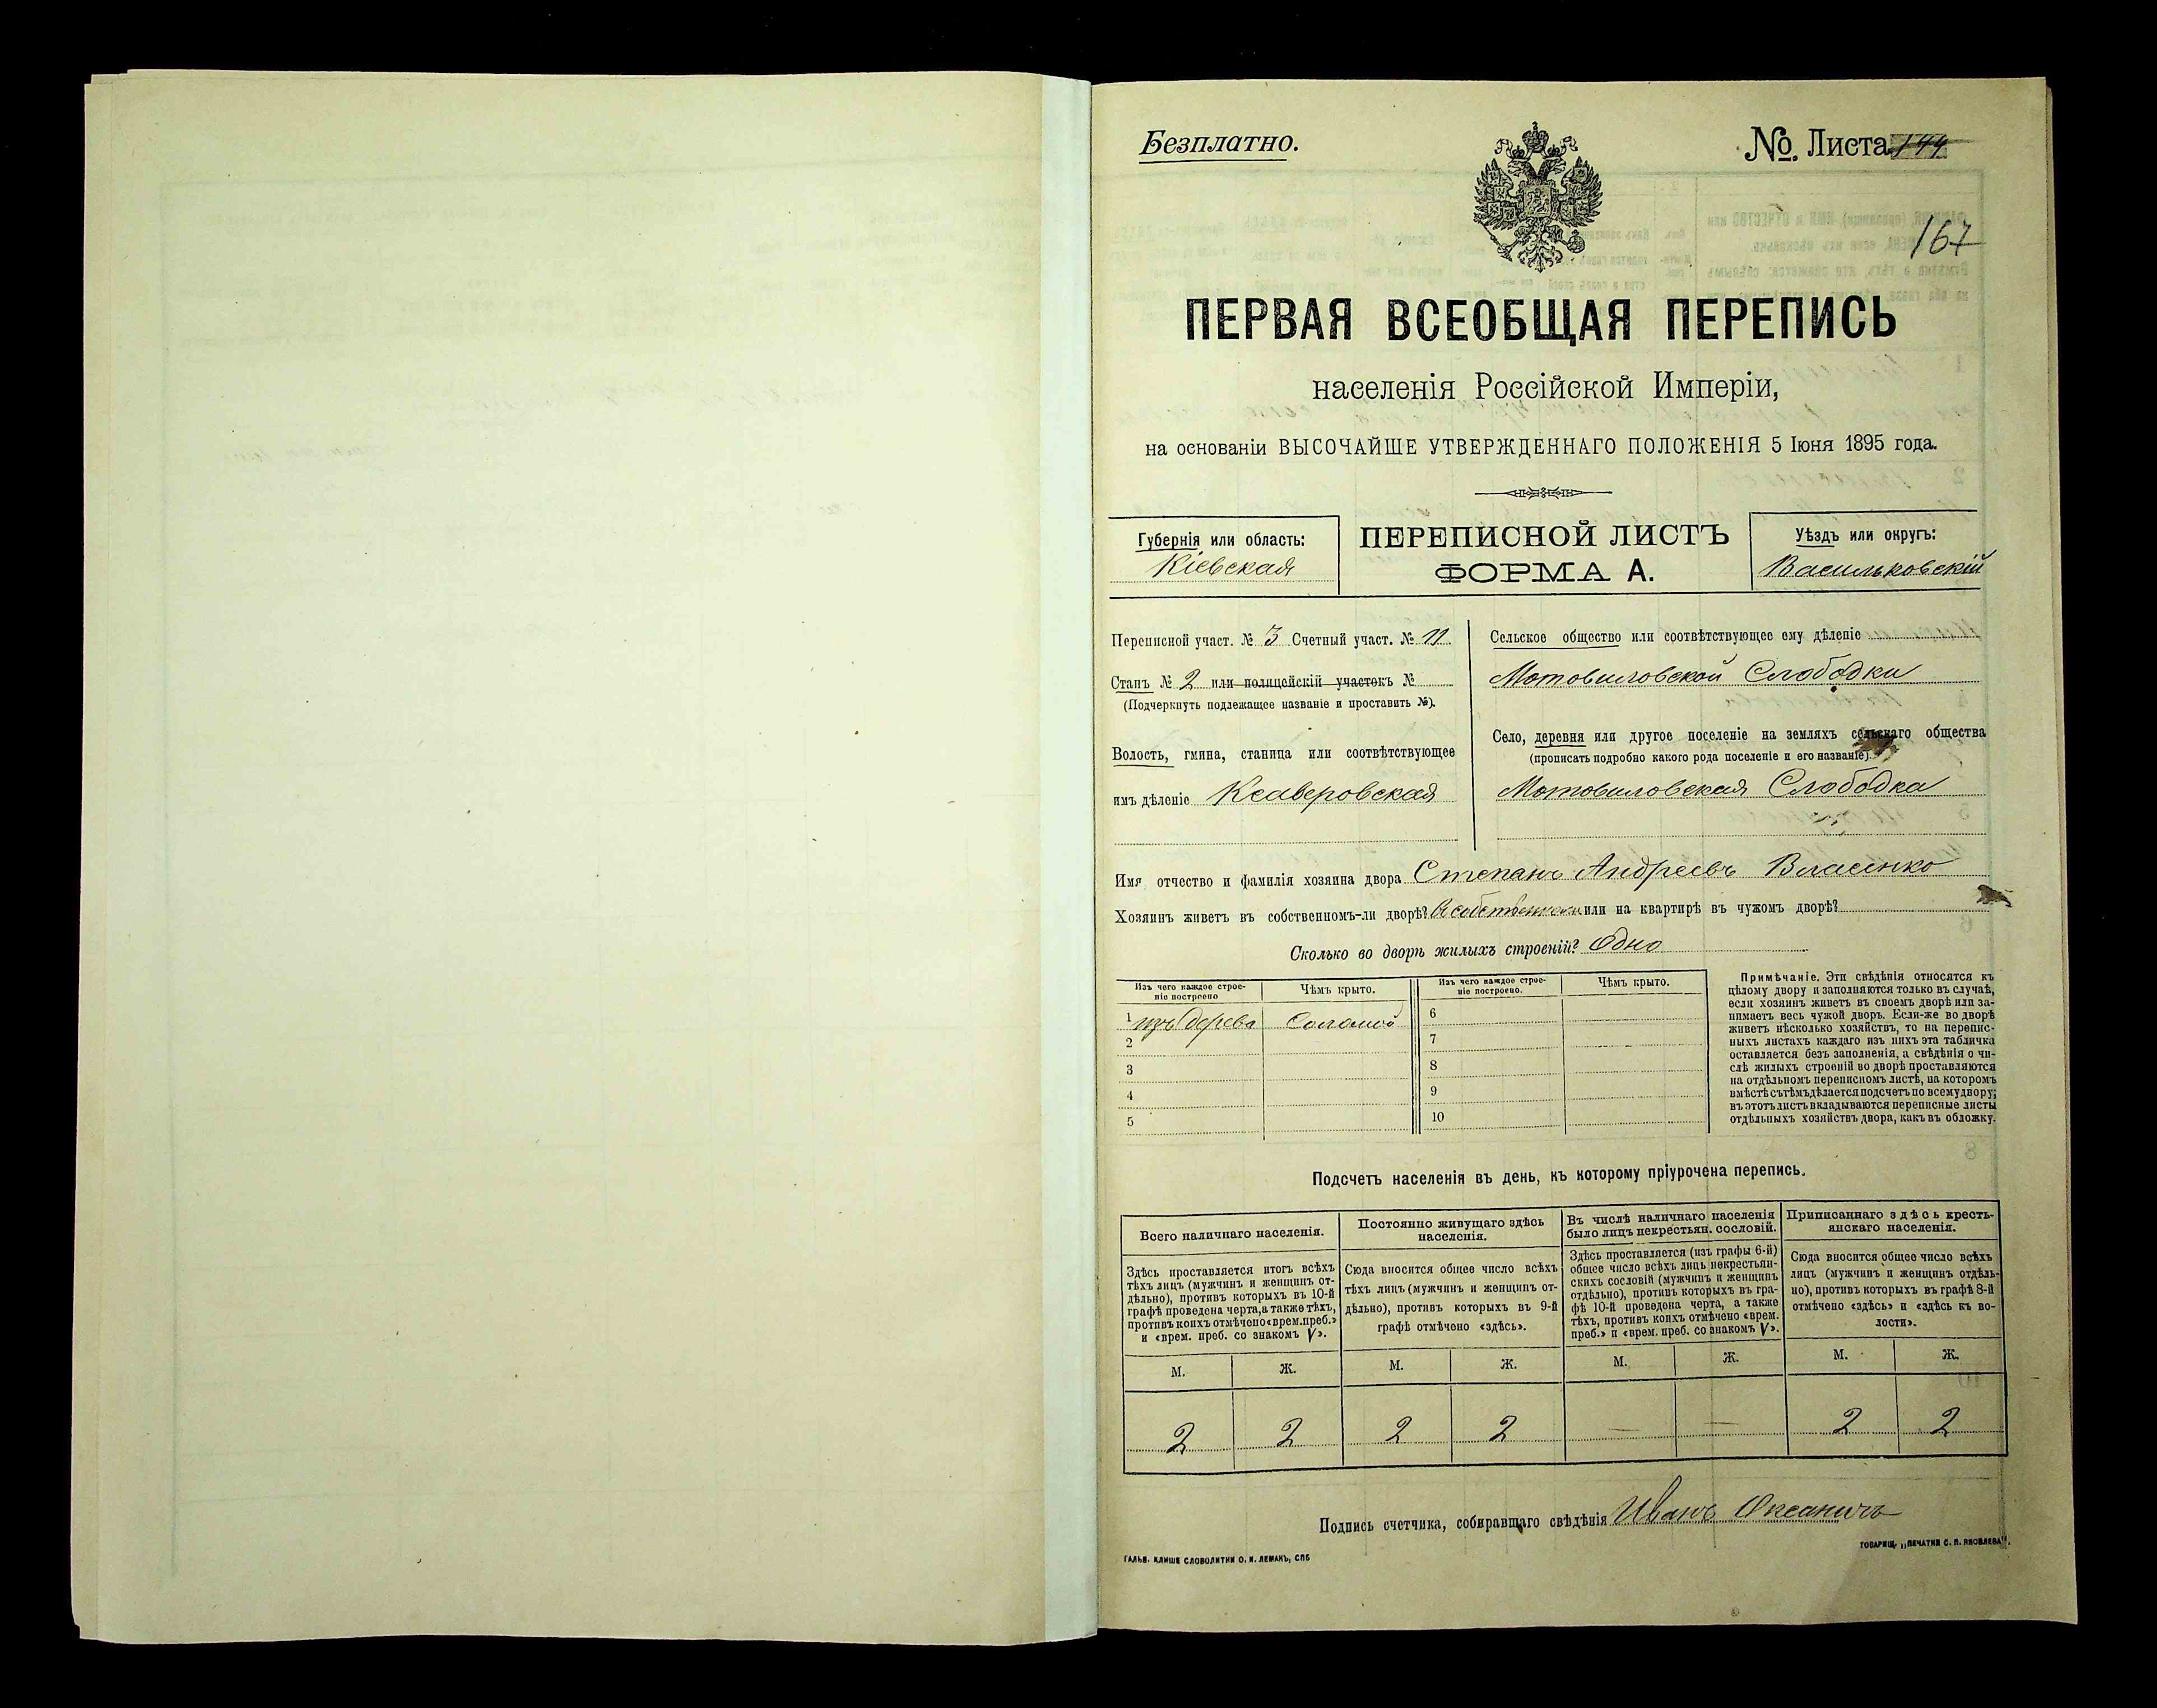 Безплатно.
№. Листа 144
167
ПЕРВАЯ ВСЕОБЩАЯ ПЕРЕПИСЬ
населенія Россійской Имперіи,
на основаніи ВЫСОЧАЙШЕ УТВЕРЖДЕННАГО ПОЛОЖЕНІЯ 5 Іюня 1895 года.
Губернія или область:
Кіевская
ПЕРЕПИСНОЙ ЛИСТЪ
ФОРМА А.
Уѣздъ или округъ:
Васильковскій
Переписной участ. № 3 Счетный участ. № 11
Станъ № 2 или полицейскій участокъ №
(Подчеркнуть подлежащее названіе и проставить №).
Волость, гмина, станица или соотвѣтствующее
имъ дѣленіе Ксаверовская
Сельское общество или соотвѣтствующее ему дѣленіе
Мотовиловской Слободки
Село, деревня или другое поселеніе на земляхъ сельскаго общества
(прописать подробно какого рода поселеніе и его названіе).
Мотовиловская Слободка
Имя отчество и фамилія хозяина двора Степанъ Андреевъ Власенко
Хозяинъ живетъ въ собственномъ-ли дворѣ? или на квартирѣ въ чужомъ дворѣ?
Сколько во дворѣ жилыхъ строеній? Одно
Изъ чего каждое строе-
ніе построено
Чѣмъ крыто.
Изъ чего каждое строе-
ніе построено.
Чѣмъ крыто.
1 изъ дерева Соломой
2
3
4
5
6
7
8
9
10
Примѣчаніе. Эти свѣдѣнія относятся къ
цѣлому двору и заполняются только въ случаѣ,
если хозяинъ живетъ въ своемъ дворѣ или за-
нимаетъ весь чужой дворъ. Если-же во дворѣ
живетъ нѣсколько хозяйствъ, то на перепис-
ныхъ листахъ каждаго изъ нихъ эта табличка
оставляется безъ заполненія, а свѣдѣнія о чи-
слѣ жилыхъ строеній во дворѣ проставляются
на отдѣльномъ переписномъ листѣ, на которомъ
вмѣстѣ съ тѣмъ дѣлается подсчетъ по всему двору;
въ этотъ листъ вкладываются переписные листы
отдѣльныхъ хозяйствъ двора, какъ въ обложку.
Подсчетъ населенія въ день, къ которому пріурочена перепись.
Всего наличнаго населенія.
Здѣсь проставляется итогъ всѣхъ
тѣхъ лицъ (мужчинъ и женщинъ от-
дѣльно), противъ которыхъ въ 10-й
графѣ проведена черта, а также тѣхъ,
противъ коихъ отмѣчено «врем. преб.»
и «врем. преб. со знакомъ V».
Постоянно живущаго здѣсь
населенія.
Сюда вносится общее число всѣхъ
тѣхъ лицъ (мужчинъ и женщинъ от-
дѣльно), противъ которыхъ въ 9-й
графѣ отмѣчено «здѣсь».
Въ числѣ наличнаго населенія
было лицъ некрестьян. сословій.
Здѣсь проставляется (изъ графы 6-й)
общее число всѣхъ лицъ некрестьян-
скихъ сословій (мужчинъ и женщинъ
отдѣльно), противъ которыхъ въ гра-
фѣ 10-й проведена черта, а также
тѣхъ, противъ коихъ отмѣчено «врем.
преб.» и «врем. преб. со знакомъ V».
Приписаннаго здѣсь кресть-
янскаго населенія.
Сюда вносится общее число всѣхъ
лицъ (мужчинъ и женщинъ отдѣль-
но), противъ которыхъ въ графѣ 8-й
отмѣчено «здѣсь» и «здѣсь къ во-
лости».
М. Ж. М. Ж. М. Ж. М. Ж.
2 2 2 2 — — 2 2
Подпись счетчика, собиравшаго свѣдѣнія Иванъ Оксаничъ
ГАЛЬВ. КЛИШЕ СЛОВОЛИТНИ О. И. ЛЕМАНЪ, СПБ
ТОВАРИЩ. „ПЕЧАТНЯ С. П. ЯКОВЛЕВА".